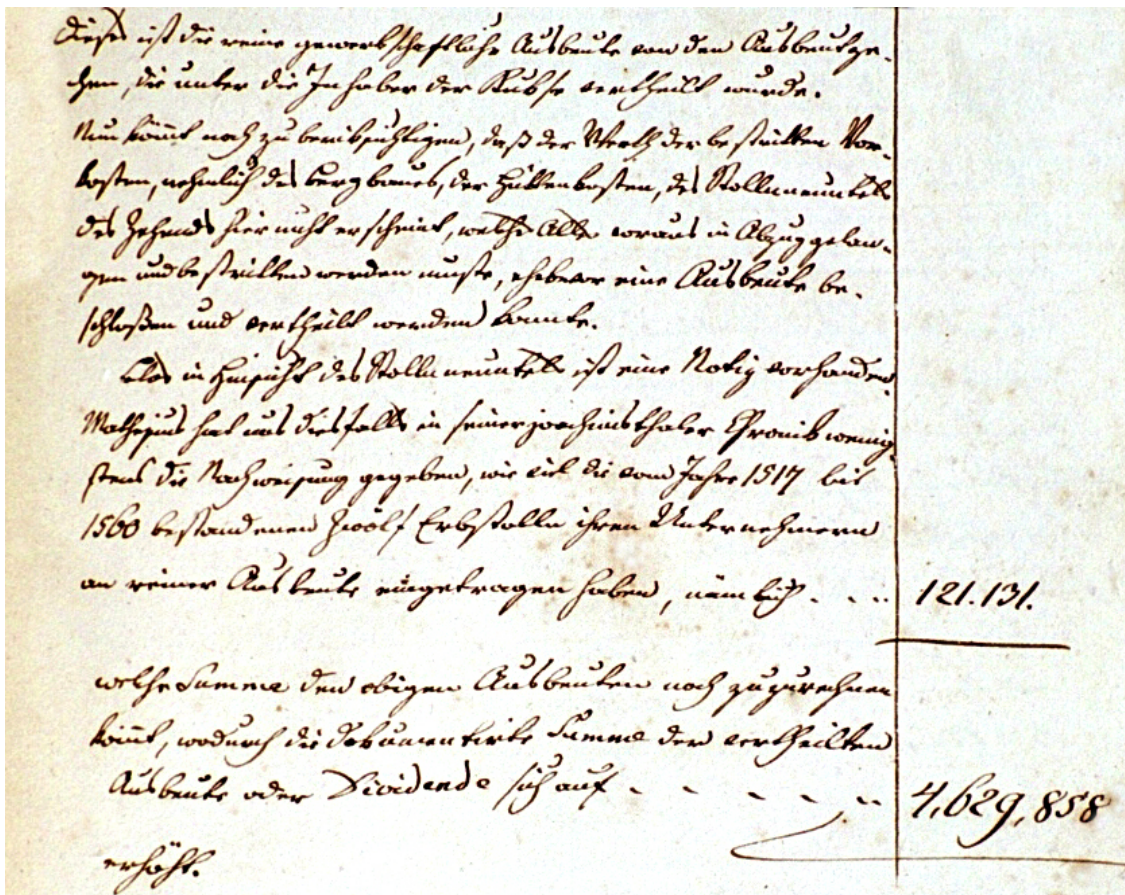 Dieses ist die reine gewerkschaftliche Ausbeute von den Ausbeutze-
chen, die unter die Inhaber der Kukse vertheilt wurde.
Nun kömmt noch zu berüksichtigen, daß der Werth der bestritten Vor-
kosten, nehmlich des Bergbaues, der Hüttenkosten, des Stollnneuntels
des Zehends hier nicht erscheint, welche Alle voraus in Abzug gelan-
gen und bestritten werden mußte, ehebevor eine Ausbeute be-
schloßen und vertheilt werden konnte.
Blos in Hinsicht des Stollnneuntels ist eine Notiz vorhanden
Mathesius hat uns diesfalls in seiner joachimsthaler Chronik wenig-
stens die Nachweisung gegeben, wie viel die vom Jahre 1517 bis
1560 bestandenen zwölf Erbstolln ihren Unternehmern
an reiner Ausbeute eingetragen haben, nämlich . . .. 121.131.
welche Summe den obigen Ausbeuten noch zuzurechnen
kömmt, wodurch die dokumentirte Summe der vertheilten
Ausbeute oder Dividende sich auf - - - - - -- 4,629,858
erhöht.